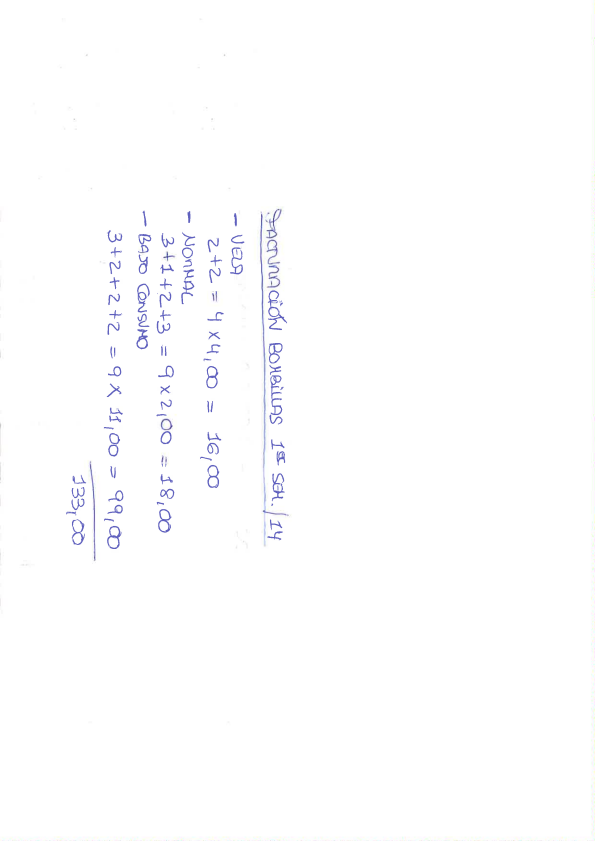 FACTURACIÓN BOMBILLAS 1er SEM./14
- VELA
2+2 = 4 x 4,00 = 16,00
- NORMAL
3+1+2+3 = 9 x 2,00 = 18,00
- BAJO CONSUMO
3+2+2+2 = 9 x 11,00 = 99,00
133,00